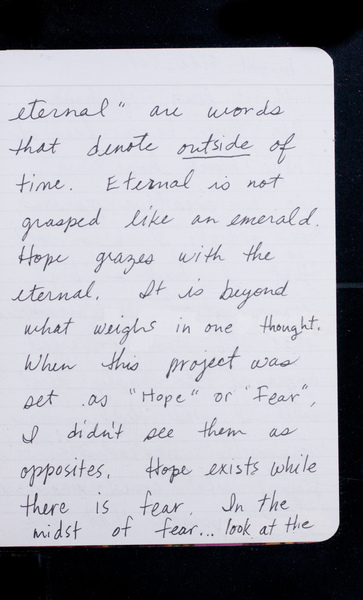 eternal" are words
that denote outside of
time. Eternal is not
grasped like an emerald.
Hope grazes with the
eternal. It is beyond
what weighs in one thought.
When this project was
set as "Hope" or "Fear",
I didn't see them as
opposites. Hope exists while
there is fear. In the
midst of fear... look at the